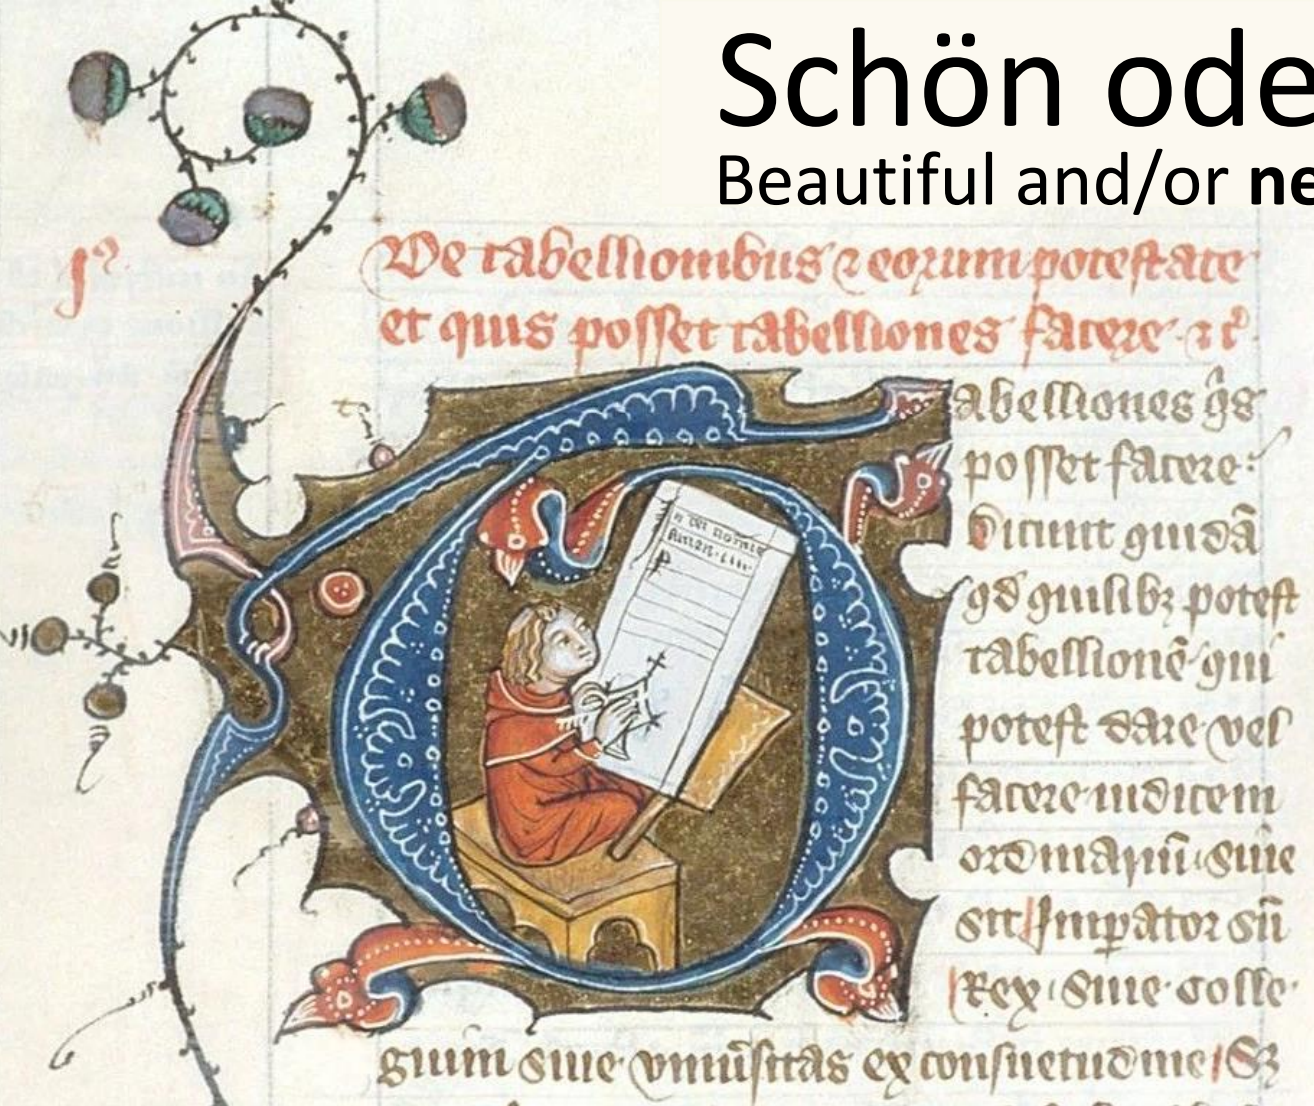 Schön ode
Beautiful and/or ne
De tabellionibus ⁊ eorum potestate
et quis posset tabelliones facere · ⁊ cͬ
abelliones
posset facere·
Dicunt quidā
qd quilibꝫ potest
tabellionē qui
potest dare vel
facere iudicem
ordinariū· siue
sit Impator siū
Rex· Siue colle·
n dei nomie
Amen
gium siue vniūsitas ex consuetudine Sꝫ